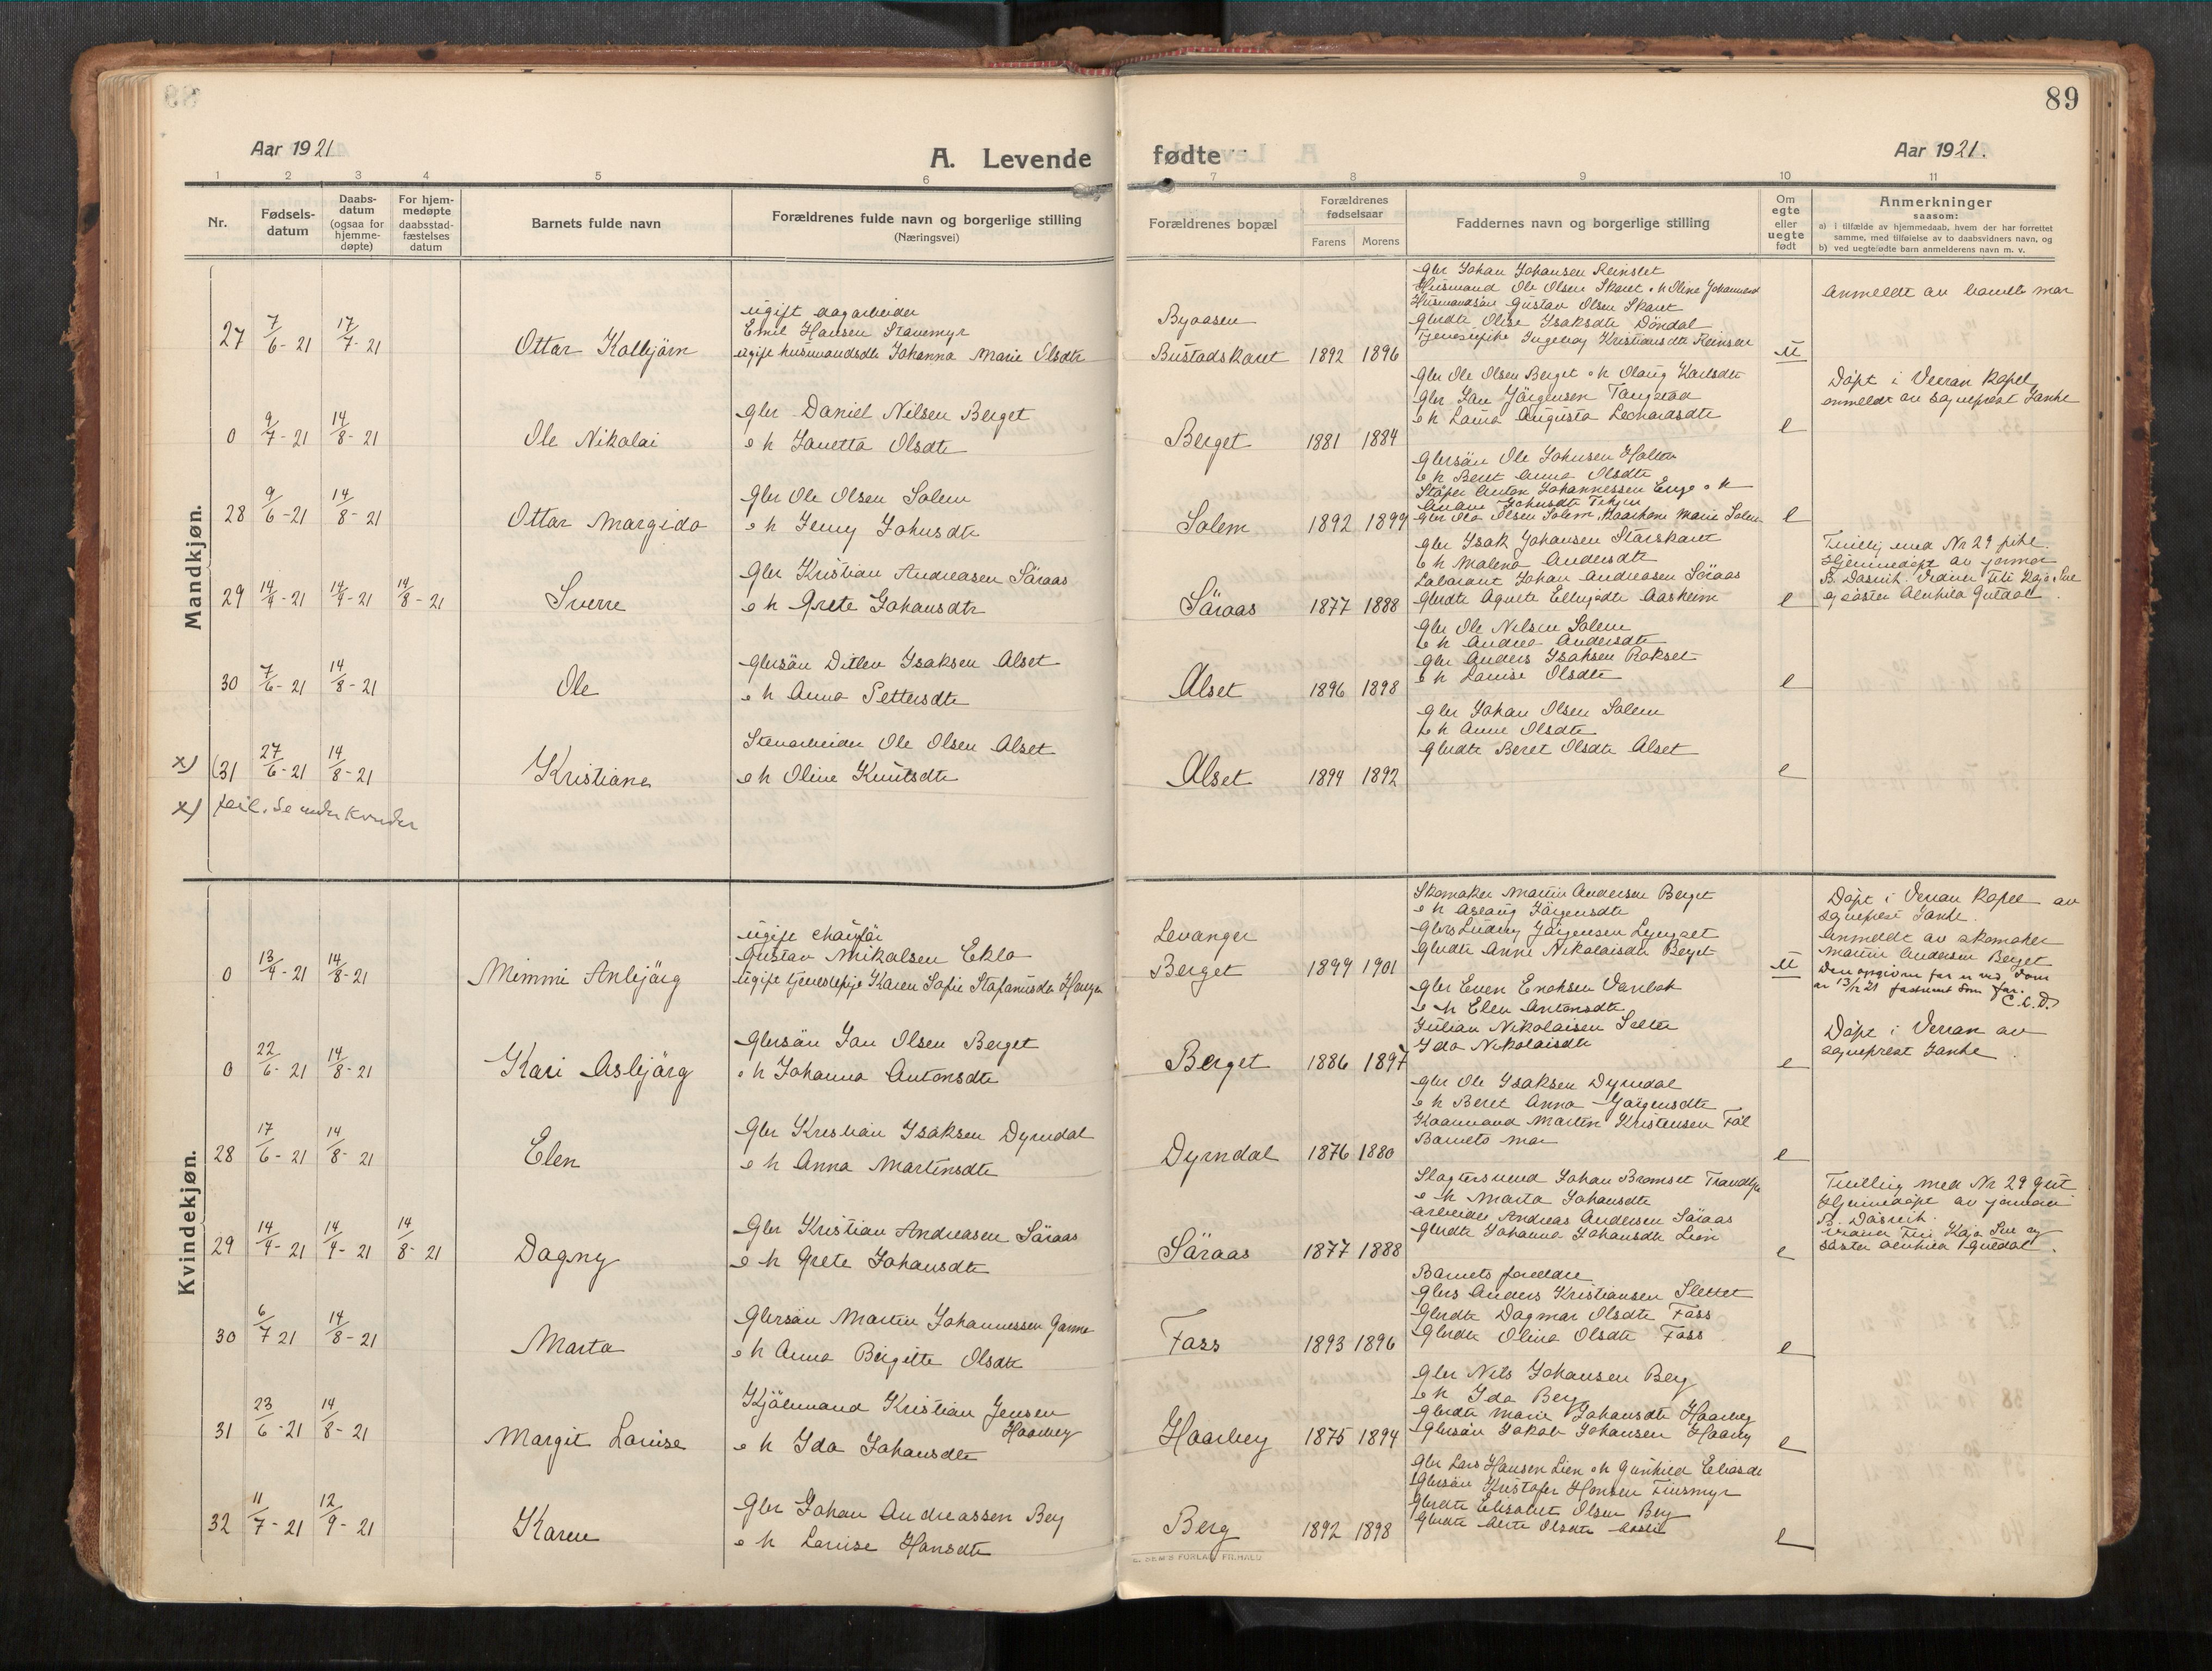 89
Aar 1921
A. Levende fødte
Aar 1921.
1 2 3 4 5 6 7 8 9 10 11
Nr.
Fødsels-
datum
Daabs-
datum
(ogsaa for
hjemme-
døpte)
For hjem-
medøpte
daabsstad-
fæstelses
datum
Barnets fulde navn
Forældrenes fulde navn og borgerlige stilling
(Næringsvei)
Forældrenes bopæl
Forældrenes
fødselsaar
Farens Morens
Faddernes navn og borgerlige stilling
Om
egte
eller
uegte
født
Anmerkninger
saasom:
a) i tilfælde av hjemmedaab, hvem der har forrettet
samme, med tilføielse av to daabsvidners navn, og
b) ved uegtefødte barn anmelderens navn m. v.
Mandkjøn.
27 7/6-21 17/7-21
Ottar Kolbjörn
ugift dagarbeider
Emil Hansen Stavemyr
ugift husmandsdtr Johanna Marie Olsdtr
Byaasen
Bustadskaret 1892 1896
Gbr Johan Johansen Reinslet
Husmand Ole Olsen Skaret
Husmandsön Gustav Olsen Skaret
Gbrdtr Olise Isaksdtr Döndal
Tjenestepike Ingeborg Kristiansdtr
U
Anmeldt av barnets mor
0 9/7-21 14/8-21
Ole Nikolai
Gbr Daniel Nilsen Berget
o h Janetta Olsdtr
Berget 1881 1884
Gbr Ole Olsen Berget o h Olaug Karlsdtr
Gbr Jan Jörgensen Tangstad
o h Laura Augusta Leonardsdtr
e
Döpt i Verran Kapel
anmeldt av sogneprest Janke
28 9/6-21 14/8-21
Ottar Margido
Gbr Ole Olsen Solem
o h Jenny Johnsdtr
Solem 1892 1899
Gbrsön Ole Johnsen Holten
o h Beret Anna Olsdtr
Anton Johannessen Enge o h
Gbr Ola Olsen Solem, Marie Solem
e
29 14/4-21 14/4-21 14/8-21
Sverre
Gbr Kristian Andreasen Säraas
o h Grete Johansdtr
Säraas 1877 1888
Gbr Isak Johansen Storskaret
o h Malena Andersdtr
Laborant Johan Andreasen Söraas
Gbrdtr Agnete Ellingsdtr Aasheim
e
Tvilling med Nr 29 pike.
Hjemmedöpt av jormor
30 7/6-21 14/8-21
Ole
Gbrsön Ditlev Isaksen Alset
o h Anna Pettersdtr
Alset 1896 1898
Gbr Ole Nilsen Solem
o h Andrea Andersdtr
Gbr Anders Isaksen Rokset
o h Lovise Olsdtr
e
x) (31 27/6-21 14/8-21
Kristiane
Stenarbeider Ole Olsen Alset
o h Oline Knutsdtr
Alset 1894 1892
Gbr Johan Olsen Solem
o h Anne Olsdtr
Gbrdtr Beret Olsdtr Alset
e
x) feil. Se under Kvinder
Kvindekjøn.
0 13/4-21 14/8-21
Mimmi Anbjärg
ugift chauför
Gustav Mikalsen Eklo
ugift tjenestepige Karen Sofie Stefanusdtr Haugen
Levanger
Berget 1899 1901
Skomaker Martin Andersen Berget
o h Aslaug Jörgensdtr
Gbrs Ludvig Jörgensen Lyngsaet
Gbrdtr Anne Nikolaisdtr Berget
U
Döpt i Verran Kapel av
sogneprest Janke.
Anmeldt av skomaker
Martin Andersen Berget
Den opgivne far er ved dom
av 13/12 21 fastsat som far.
C.C.D.
0 22/6-21 14/8-21
Kari Asbjärg
Gbrsön Jan Olsen Berget
o h Johanna Antonsdtr
Berget 1886 1897
Gbr Even Eriksen Vanbak
o h Elen Antonsdtr
Julian Nikolaisen Selte
Ida Nikolaisdtr
e
Döpt i Verran av
sogneprest Janke.
28 17/6-21 14/8-21
Elen
Gbr Kristian Isaksen Dyrndal
o h Anna Martinsdtr
Dyrndal 1876 1880
Gbr Ole Isaksen Dyrndal
o h Beret Anna Jörgensdtr
Kaarmand Martin Kristensen Fol
Barnets mor
e
29 14/4-21 14/4-21 14/8-21
Dagny
Gbr Kristian Andreasen Säraas
o h Grete Johansdtr
Säraas 1877 1888
Slagtersvend Johan Bromset
o h Marta Johansdtr
arbeider Andreas Andersen Säraas
Gbrdtr Johanna Johansdtr Lien
e
Tvilling med Nr 29 gut
Hjemmedöpt av jormor
30 6/7 21 14/8-21
Marta
Gbrsön Martin Johannessen Garme
o h Anna Birgitte Olsdtr
Fass 1893 1896
Barnets foreldre
Gbrs Anders Kristiansen Slettet
Gbrdtr Dagmar Olsdtr Fass
Gbrdtr Olina Olsdtr Fass
e
31 23/6-21 14/8-21
Margit Lovise
Kjölmand Kristian Jensen
Haarberg
o h Ida Johansdtr
Haarberg 1875 1894
Gbr Nils Johansen Berg
o h Ida Berg
Gbrdtr Marie Johansdtr Haarberg
Gbrsön Jakob Johansen Haarberg
e
32 11/7-21 12/9-21
Karen
Gbr Johan Andreassen Berg
o h Lovise Hansdtr
Berg 1892 1898
Gbr Lars Hansen Lien o h Gunhild Eliasdtr
Gbrsön Kristofer Hansen Finsmyr
Gbrdtr Elisabet Olsen Berg
Gbrdtr Olsdtr
e
E. SEM'S FORLAG, FR.HALD